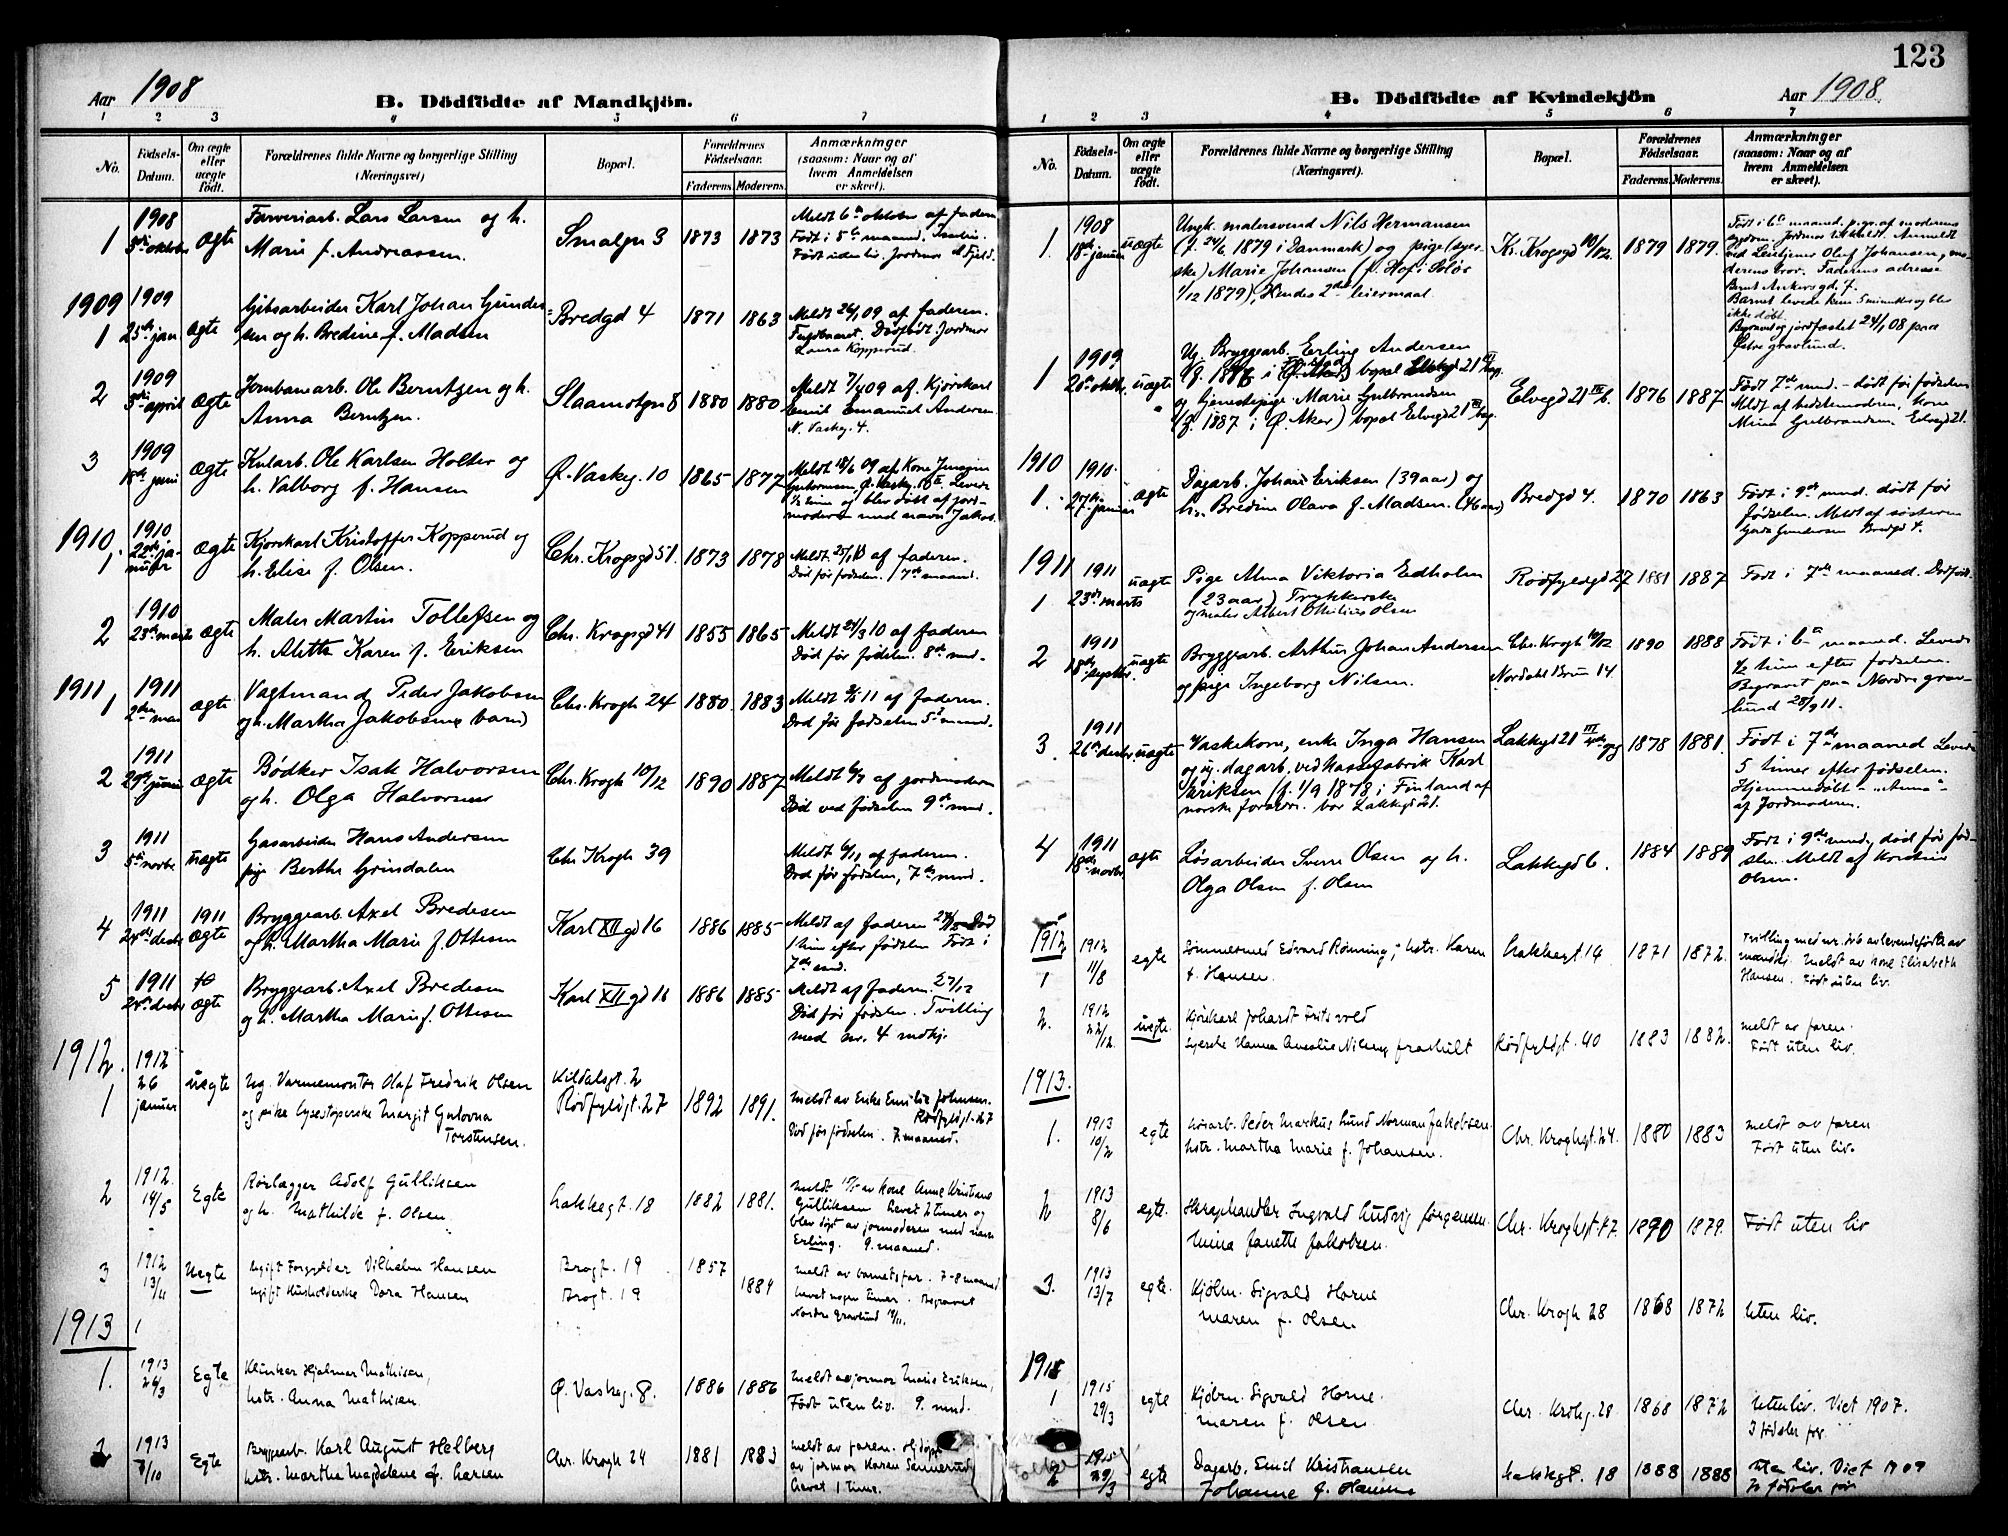 123
Aar 1908
B. Dödfödte af Mandkjön.
1 2 3 4 5 6 7
No.
Födsels-
Datum.
Om ægte
eller
uægte
födt.
Forældrenes fulde Navne og borgerlige Stilling
(Næringsvei)
Bopæl.
Forældrenes
Födselsaar.
Faderens. Moderens.
Anmærkninger
(saasom: Naar og af
hvem Anmeldelsen
er skeet).
1908
1 ægte
Farveriarb. Lars Larsen og h.
Marie f. Andreassen.
Smalgn 3 1873 1873
Meldt 6te oktober af faderen
Født i 5te maaned.
Født uden liv. Jordmor
1909 1909
1 25de jan ægte
Gibsarbeider Karl Johan Gunder-
sen og h. Bredine f. Madsen
Bredgd 4 1871 1863
Meldt 26/1 09 af faderen.
Fuldbaaret. Dødfødt Jordmor
Laura Kopperud.
1909
2 april ægte
Jernbanearb. Ole Berntzen og h.
Anna Berntzen.
1880 1880
Meldt 7/4 09 af Kjørekarl
Emil Emanuel Andersen
N. Vaskeg. 4.
1909
3 18de juni ægte
Kularb. Ole Karlsen Holter og
h. Valborg f. Hansen
Ø. Vaskeg. 10 1865 1877
1/2 time og blev døbt af jord-
moderen med navn Jakob.
1910 1910
1 22de ja-
nuar ægte
Kjørekarl Kristoffer Kopperud og
h. Elise f. Olsen.
Chr. Krogsgd 51 1873 1878
af faderen.
Død før fødselen. 7de maaned.
1910
2 23de marts ægte
Maler Martin Tollefsen og
h. Alette Karen f. Eriksen
Chr. Krogsgd 41 1855 1865
Meldt 24/3 10 af faderen
Død før fødselen. 8de mnd.
1911 1911
1 mai ægte
Vagtmand Peder Jakobsen
og h. Martha Jakobsen
Chr. Krogh 24 1880 1883
Meldt 3/5 11 af faderen.
Død før fødselen 5te maaned.
1911
2 29de juni ægte
Bødker Isak Halvorsen
og h. Olga Halvorsen
Chr. Krogh 10/12 1890 1887
Meldt af jordmoderen
Død ved fødselen 9de mnd.
1911
3 5te novbr uægte
Gasarbeider Hans Andersen
pige Berthe Grindalen
Chr Krogh 39
Meldt 6/11 af faderen.
Død før fødselen, 7de mnd.
1911 1911
4 24de decbr ægte
Bryggearb. Axel Bredesen
og h. Martha Marie f. Ottesen
Karl XII gd 16 1886 1885
Meldt af faderen Død
1 time efter fødselen Født i
7de mnd.
1911
5 24de decbr ægte
Bryggearb. Axel Bredesen
og h. Martha Marie f. Ottesen
Karl XII gd 16 1886 1885
Meldt af faderen 27/12
Død før fødselen. Tvilling
med nr. 4 mdkj.
1912. 1912
1 26
januar uægte
Ug. Varmemontør Olaf Fredrik Olsen
og pike Margit Gulovna
Torstensen.
Kildalsgt. 2
Rødfyldgt. 27 1892 1891.
meldt av Enke Emilie Johnsen.
Rødfyldgt. 27
Død før fødselen. 7. maaned.
1912.
2 14/5 Egte
Rørlægger Adolf Gulliksen
og h. Mathilde f. Olsen.
Lakkegt. 18 1882 1881.
meldt av kone Anne Kristiane
Gulliksen Levet 2 timer og
blev døpt av jormoderen med navn
Erling. 9. maaned.
1912
3 13/11 Uegte
ugift Forgylder Vilhelm Hansen
ugift Husholderske Dora Hansen
Brogt. 19
Brogt. 19
1857 1884
meldt av barnets far. 7-8 maaned
Levet nogen timer. Begravet
Nordre Gravlund
1913
1. 1913
24/3 Egte
Klinker Hjalmar Mathisen,
hstr. Anna Mathisen.
Ø. Vaskeg. 8. 1886 1886
meldt av jormor Marie Eriksen,
Født uten liv. 9. mnd.
2 1913
8/10 Egte
Bryggearb. Karl August Helberg
hstr. Martha Magdalene f. Larsen
Chr. Krogh 24 1881 1883
meldt av faren. Hj.døpt
av jormor Karen Sannerud
Levet 1 time.
B. Dödfödte af Kvindekjön
Aar 1908.
1 2 3 4 5 6 7
No.
Födsels-
Datum.
Om ægte
eller
uægte
födt.
Forældrenes fulde Navne og borgerlige Stilling
(Næringsvei).
Bopæl.
Forældrenes
Födselsaar.
Faderens. Moderens.
Anmærkninger
(saasom: Naar og af
hvem Anmeldelsen
er skeet).
1908
1 18de januar uægte
Ungk. malersvend Nils Hermansen
(f. 24/6 1879 i Danmark) og pige (syer-
ske) Marie Johansen (f. Hof i Solør
1/12 1879), Hendes 2det leiermaal.
Kr. Krogsgd 10/12. 1879 1879.
Født i 6te maaned, pige af moderens
ved Leietjener Oluf Johansen, mo-
derens bror. Faderens adresse
Bernt Ankersgd. 7.
Barnet levede kun 5 minutter og blev
ikke døbt.
Begravet og jordfæstet 24/1 08 paa
Østre gravlund.
1909
1 26de oktbr. uægte
Ug. Bryggearb. Erling Andersen
og tjenestepige Marie Gulbrandsen
(f. 1887 i Ø. Aker) bopæl Elvegd 21
Elvegd 21 III b. 1876 1887
Født 7de mnd. - død før fødselen
Meldt af bedstemoderen, kone
Mina Gulbrandsen, Elvegd 21.
1910 1910.
1. 27de januar ægte
Dagarb. Johan Eriksen (39 aar) og
h. Bredine Olava f. Madsen. (46 aar)
Bredgd 4. 1870 1863
Født i 9de mnd. død før
fødselen. Meldt af søsteren
Gundersen Bredgd 4.
1911 1911
1 23de marts uægte
Pige Alma Viktoria Edholm
(23 aar) Trykkerske
og maler Albert Othilius Olsen
Rødfyldgd 27 1881 1887
Født i 7de maaned. Dødfødt.
1911
2 18de septbr. uægte
Bryggearb. Arthur Johan Andersen
og pige Ingeborg Nilsen.
Chr. Krogh 10/12
Nordahl Brun 14. 1890 1888
Født i 6te maaned. Levede
1/2 time efter fødselen.
Begravet paa Nordre grav-
lund 28/9 11.
1911
3. 26de decbr. uægte
Vaskekone, enke Inga Hansen
og ug. dagarb. ved Kassefabrik Karl
Eriksen (f. 1/9 1878 i Finland af
norske forældre. bor Lakkegd 21.
Lakkegd 21 III 1878 1881.
Født i 7de maaned Levede
5 timer efter fødselen.
Hjemmedøbt - "Anna" -
af Jordmoderen.
1911
4 18de novbr ægte
Løsarbeider Sverre Olsen og h.
Olga Olsen f. Olsen
Lakkegd 6. 1884 1889
Født i 9de mnd, død før fød-
selen. Meldt af Kristine
Olsen.
1912 1912
1 11/8 egte
Tømmermd Edvard Rønning; hstr. Karen
f. Hansen.
Lakkegt. 14 1871 1872.
Tvilling med nr. 26 av levendefødte av
mandkj. Meldt av kone Elisabeth
Hansen. Født uten liv.
1912
2. 22/12. uegte
Kjørekarl Johardt Fritsvold
Syerske Hanna Amalie Nilsen
Rødfyldgt. 40 1883 1882.
meldt av faren.
Født uten liv.
1913.
1. 1913
10/2 egte
Løsarb. Peder Markus Lund Norman Jakobsen
hstr. Martha Marie f. Johansen.
Chr. Kroghgt. 24. 1880 1883
meldt av faren
Født uten liv.
2 1913
8/6 egte.
Skraphandler Ingvald Ludvig Jørgensen.
Mina Janette Jakobsen.
Chr. Kroghgt. 47. 1870 1879.
Født uten liv
3. 1913
13/7 egte.
Kjølm. Sigvald Horne
Maren f. Olsen
Chr. Krogh 28 1868 1872
Uten liv.
1915
1 1915
29/3 egte
Kjølm. Sigvald Horne.
Maren f. Olsen
Chr. Krohg. 28 1868 1872
Uten liv. Viet 1907.
3 fødsler før.
2 1915
29/3 egte
Dagarb. Emil Kristiansen
Johanne f. Hansen
Lakkegt. 18 1888 1888
Uten liv. Viet 1909
2 fødsler før